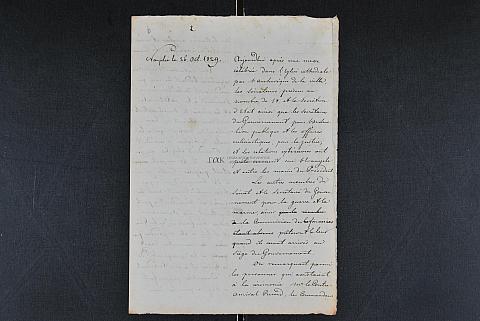 Nauplie le 26 Oct. 1829.
Aujourdhui après une messe
célébrée dans l'Eglise cathédrale
par l'archevêque de la ville
les Sénateurs présens au
nombre de et le Secrétaire
d'état ainsi que les Secrétaires
du Gouvernement pour l'instruc-
tion publique et les affaires
ecclésiastiques, pour la justice,
et les relations extérieures ont
prêté serment sur l'Evangile
et entre les mains du Président
Les autres membres du
Sénat et le Secrétaire du Gouver-
nement pour la guerre et la
marine, ainsi
à la Commission des finances
étant absens prêteront le leur
quand ils seront arrivés au
siège du Gouvernement.
On remarquait parmi
les personnes qui assistaient
à la cérémonie Mr. le Contre-
amiral le Commandeur
ΓΑΚ